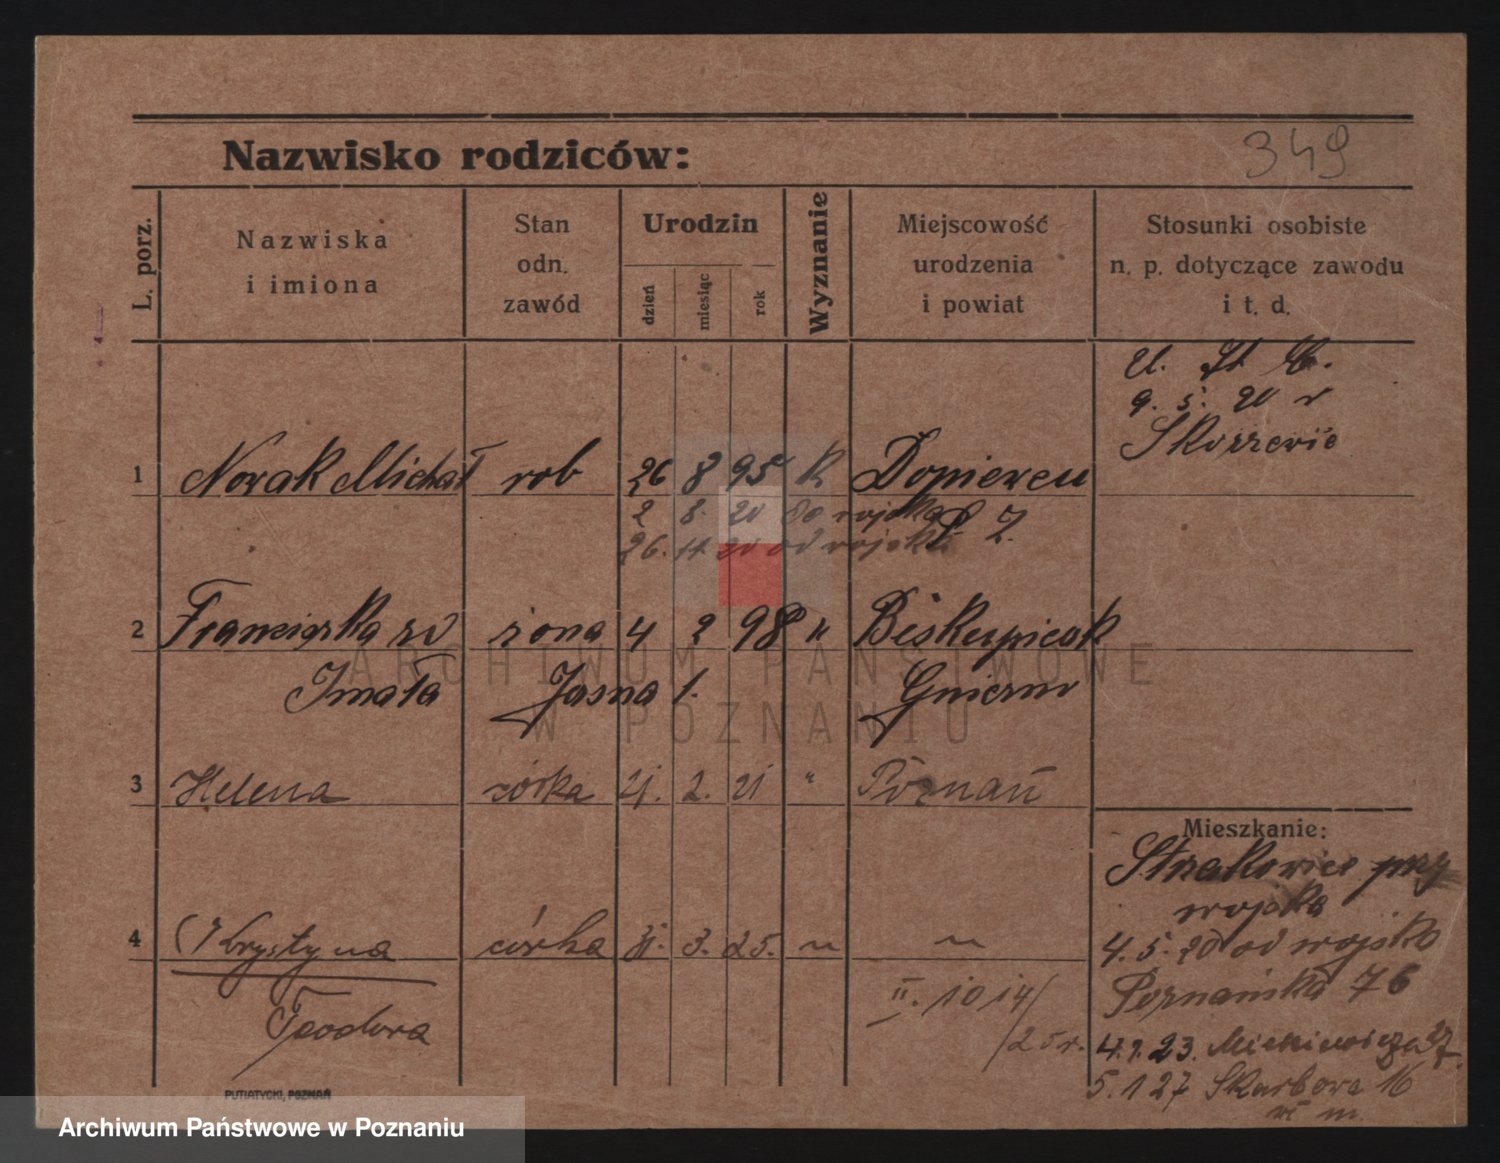 349
Nazwisko rodziców:
L. porz.
Nazwiska
i imiona
Stan
odn.
zawód
Urodzin
dzień
miesiąc
rok
Wyznanie
Miejscowość
urodzenia
i powiat
Stosunki osobiste
n. p. dotyczące zawodu
i t. d.
9. 5. 20 r
1 Nowak Michał rob 26 8 95 K Dopiewcu
2 8. 20 do wojska P. Z.
26. 11. 20 od wojska
2 Franciszka żona 4 2 98 " Biskupicak
Jmała Jasna 1. Gniezno
3 Helena córka 21. 2. 21 " Poznań
Mieszkanie:
Strzałkowice przy
wojska
4 Krystyna córka 31. 3. 25. " "
Teodora
II. 1014/
/25r.
4. 5. 20 od wojsko
Poznańska 76
4. 1. 23. Mickiewicza 27.
5. 1 27 Skarbowa 16
m.
PUTIATYCKI, POZNAŃ
ARCHIWUM PAŃSTWOWE
W POZNANIU
Archiwum Państwowe w Poznaniu